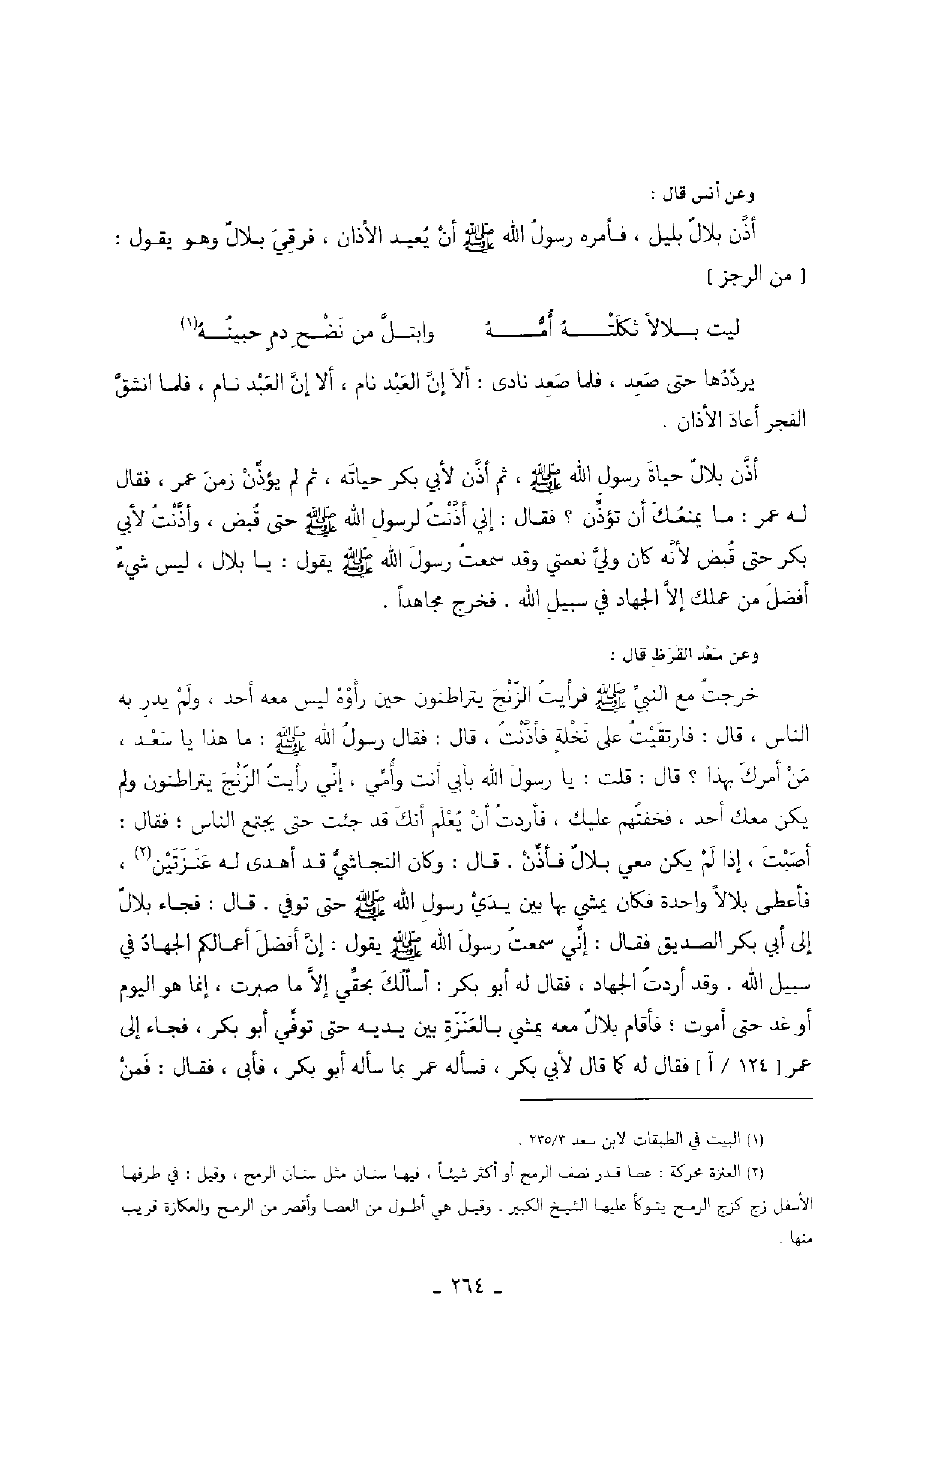 وعن أنس قال :
أذَّن بلالٌ بليل ، فأمره رسولُ الله ﷺ أنْ يُعيد الأذان ، فرقِيَ بلالٌ وهو يقول :
[ من الرجز ]
ليت بلالاً ثكلَتْهُ أُمُّهُ وابتلَّ من نَضْحِ دمٍ جبينُهُ(١)
يردّدُها حتى صَعِد ، فلما صَعِد نادى : ألاَ إنَّ العَبْد نام ، ألا إنَّ العَبْد نام ، فلما انشقَّ
الفجر أعادَ الأذان .
أذَّن بلالٌ حياةَ رسول الله ﷺ ، ثم أذَّن لأبي بكر حياتَه ، ثم لم يؤذِّنْ زمنَ عمر ، فقال
له عمر : ما يمنعُكَ أن تؤذِّن ؟ فقال : إني أذَّنْتُ لرسول الله ﷺ حتى قُبض ، وأذَّنْتُ لأبي
بكر حتى قُبض لأنَّه كان وليَّ نعمتي وقد سمعتُ رسولَ الله ﷺ يقول : يا بلال ، ليس شيءٌ
أفضلَ من عملك إلاَّ الجهاد في سبيلِ الله . فخرج مجاهداً .
وعن سَعْد القَرَظ قال :
خرجتُ مع النبيِّ ﷺ فرأيتُ الزَّنْجَ يتراطنون حين رأَوْهُ ليس معه أحد ، ولَمْ يدرِ به
الناس ، قال : فارتقَيْتُ على نَخْلةٍ فأذَّنْتُ ، قال : فقال رسولُ الله ﷺ : ما هذا يا سَعْد ،
مَنْ أمركَ بهذا ؟ قال : قلت : يا رسولَ الله بأبي أنت وأُمّي ، إنّي رأيتُ الزَّنْجَ يتراطنون ولم
يكن معك أحد ، فخفتُهم عليك ، فأردتُ أنْ يُعْلم أنكَ قد جئت حتى يجتمع الناس ؛ فقال :
أصَبْتَ ، إذا لَمْ يكن معي بلالٌ فأذِّنْ . قال : وكان النجاشيُّ قد أهدى له عَنَزَتَيْن(٢) ،
فأعطى بلالاً واحدة فكان يمشي بها بين يدَيْ رسولِ الله ﷺ حتى توفي . قال : فجاء بلالٌ
إلى أبي بكر الصديق فقال : إنّي سمعتُ رسولَ الله ﷺ يقول : إنَّ أفضلَ أعمالكم الجهادُ في
سبيل الله . وقد أردتُ الجهاد ، فقال له أبو بكر : أسألكَ بحقِّي إلاَّ ما صبرت ، إنما هو اليوم
أو غد حتى أموت ؛ فأقام بلالٌ معه يمشي بالعَنَزَةِ بين يديه حتى توفِّي أبو بكر ، فجاء إلى
عمر [ ١٢٤ / أ ] فقال له كما قال لأبي بكر ، فسأله عمر بما سأله أبو بكر ، فأبى ، فقال : فَمنْ
(١) البيت في الطبقات لابن سعد ٢٣٥/٣ .
(٢) العنزة محركة : عصا قدر نصف الرمح أو أكثر شيئاً ، فيها سنان مثل سنان الرمح ، وقيل : في طرفها
الأسفل زج كزج الرمح يتوكأ عليها الشيخ الكبير . وقيل هي أطول من العصا وأقصر من الرمح والعكازة قريب
منها .
ـ ٢٦٤ ـ